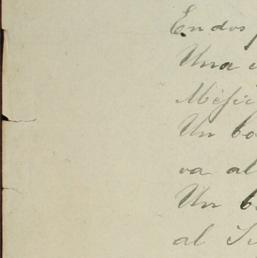 En dos
Una
Méjic
Un bo
va al
Un b
al